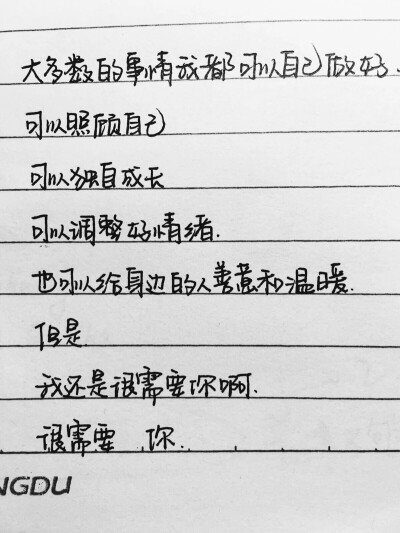 大多数的事情我都可以自己做好.
可以照顾自己
可以独自成长
可以调整好情绪.
也可以给身边的人善意和温暖.
但是.
我还是很需要你啊.
很需要 你.
NGDU